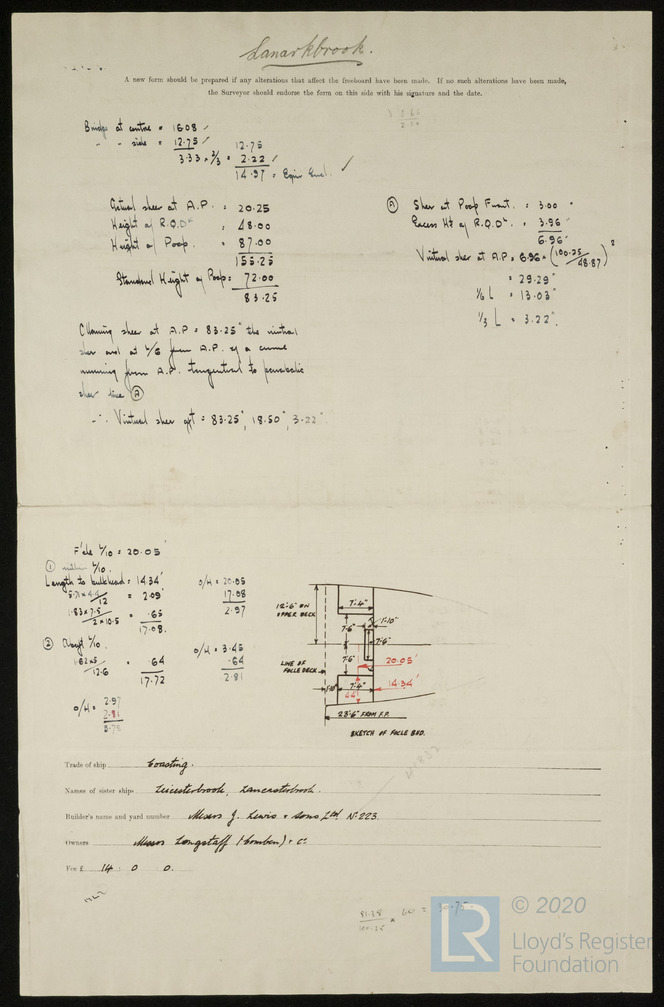 Lanarkbrook.
A new form should be prepared if any alterations that affect the freeboard have been made. If no such alterations have been made,
the Surveyor should endorse the form on this side with his signature and the date.
Bridge at centre = 16.08 ✓
" " side = 12.75 ✓ 12.75
3.33 × 2/3 = 2.22
14.97 = Equiv Encl. ✓
Actual sheer at A.P. = 20.25
Height of R.Q.Dk : 48.00
Height of Poop. = 87.00
155.25
Standard Height of Poop = 72.00
83.25
Allowing sheer at A.P = 83.25" the virtual
sheer ord at L/6 from A.P. of a curve
running from A.P. tangential to parabolic
sheer line (A)
∴ Virtual sheer aft = 83.25", 18.50", 3.22"
(A) Sheer at Poop Front. = 3.00 "
Excess Ht of R.Q.Dk. = 3.96 "
6.96 "
Virtual sheer at A.P = 6.96 × (100.25/48.87)²
= 29.29"
1/6 L = 13.03"
1/3 L = 3.22".
F'cle L/10 = 20.05'
(1) within L/10.
Length to bulkhead = 14.34'
5.71 × 4.4/12 = 2.09'
1.83 × 7.5/2 × 10.5 = .65
17.08.
O/H = 20.05
17.08
2.97
(2) Abaft L/10.
1.62 × 5/12.6 = .64
17.72
O/H = 3.45
.64
2.81
O/H = 2.97
2.81
12'-6" ON
UPPER DECK
7'-4"
7'-6"
1'-10"
7'-6"
7'-6"
LINE OF
FOCLE DECK
20.05'
1'-10"
7'-4"
14.34'
44"
23'-6" FROM F.P.
SKETCH OF FOCLE BHD.
Trade of ship Coasting.
Names of sister ships Leicesterbrook, Lancasterbrook.
Builder's name and yard number Messrs J. Lewis & Sons Ltd No 223.
Owners Messrs Comben Longstaff & Co.
Fee £ 14 : 0 0.
© 2020
LR
Lloyd's Register
Foundation